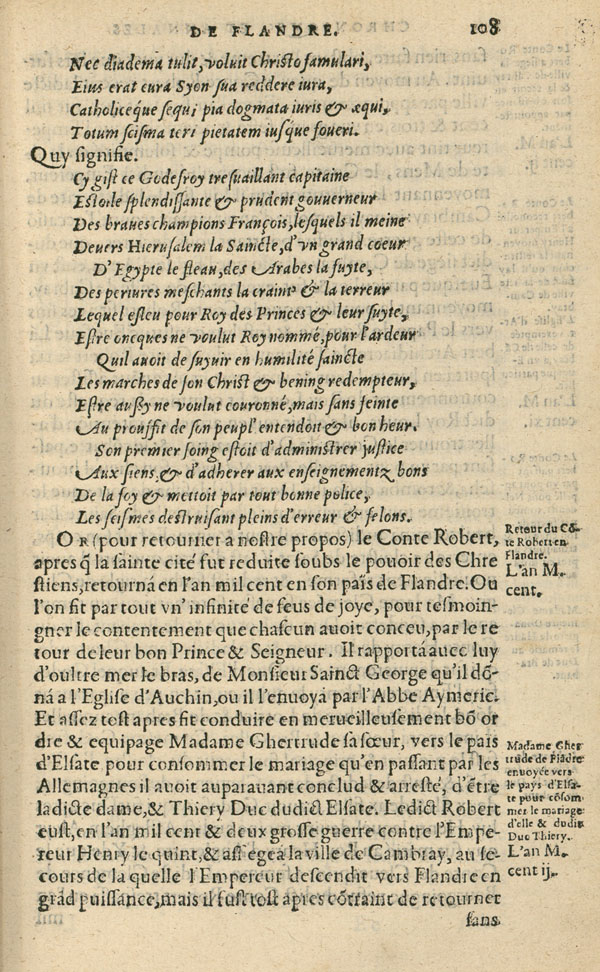 DE FLANDRE. 108
Nec diadema tulit, voluit Christo famulari,
Eius erat cura Syon sua reddere iura,
Catholiceque sequi pia dogmata iuris & æqui,
Totum scisma teri pietatem iusque foueri.
Quy signifie.
Cy gist ce Godefroy tresuaillant capitaine
Estoile splendissante & prudent gouuerneur
Des braues champions François, lesquels il meine
Deuers Hierusalem la Saincte, d'vn grand coeur
D'Egypte le fleau, des Arabes la fuyte,
Des periures meschants la craint' & la terreur
Lequel esleu pour Roy des Princes & leur suyte,
Estre oncques ne voulut Roy nommé, pour l'ardeur
Quil auoit de suyuir en humilité saincte
Les marches de son Christ & bening redempteur,
Estre aussy ne voulut couronné, mais sans feinte
Au prouffit de son peupl' entendoit & bon heur.
Son premier soing estoit d'administrer justice
Aux siens, & d'adherer aux enseignementz bons
De la foy & mettoit par tout bonne police,
Les scismes destruisant pleins d'erreur & felons.
OR (pour retourner a nostre propos) le Conte Robert,
apres q̃ la sainte cité fut reduite soubs le pouoir des Chre
stiens, retourná en l'an mil cent en son païs de Flandre. Ou
l'on fit par tout vn' infinité de feus de joye, pour tesmoin-
gner le contentement que chascun auoit conceu, par le re
tour de leur bon Prince & Seigneur. Il rapportá auec luy
d'oultre mer le bras, de Monsieur Sainct George qu'il dõ-
ná a l'Eglise d'Auchin, ou il l'enuoyá par l'Abbe Aymeric.
Et assez tost apres fit conduire en merueilleusement bõ or
dre & equipage Madame Ghertrude sa sœur, vers le païs
d'Elsate pour consommer le mariage qu'en passant par les
Allemagnes il auoit auparauant conclud & arresté, d'être
ladicte dame, & Thiery Duc dudict Elsate. Ledict Robert
eust, en l'an mil cent & deux grosse guerre contre l'Empe-
reur Henry le quint, & assiegea la ville de Cambray, au se-
cours de la quelle l'Empereur descendit vers Flandre en
grãd puissance, mais il fust tost apres cõtraint de retourner
sans
Retour du Cõ-
te Robert en
Flandre.
L'an M.
cent.
Madame Gher
trude de Flãdre
enuoyée vers
le pays d'Elsa-
te pour cõsom-
mer le mariage
d'elle & dudit
Duc Thiery.
L'an M.
cent ij.